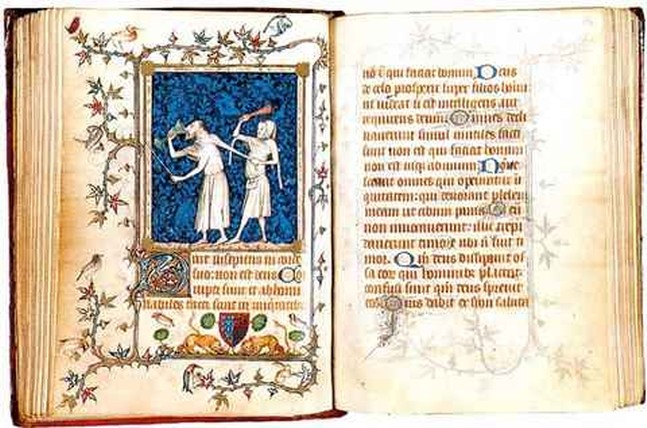 Dixit insipiens in corde
suo: non est deus Co
rrupti sunt et abhomi
nabiles facti sunt in iniquitatib
nō ē qui faciat bonum Deus
de celo prospexit super filios homi
ut videat si est intelligens aut
requirens deum Omnes decli
naverunt simul inutiles facti
sunt non est qui faciat bonum
non est usq ad unum Nōne
scient omnes qui operantur i
quitatem: qui devorant plebem
meam ut cibum panis Deū
non invocaverunt: illic trepi
daverunt timoꝛe ubi nō fuit ti
mor Qm deus dissipavit os
sa eoꝛ qui hominibs placent:
confusi sunt qm deus sprevit
eos Quis dabit ex syon saluta